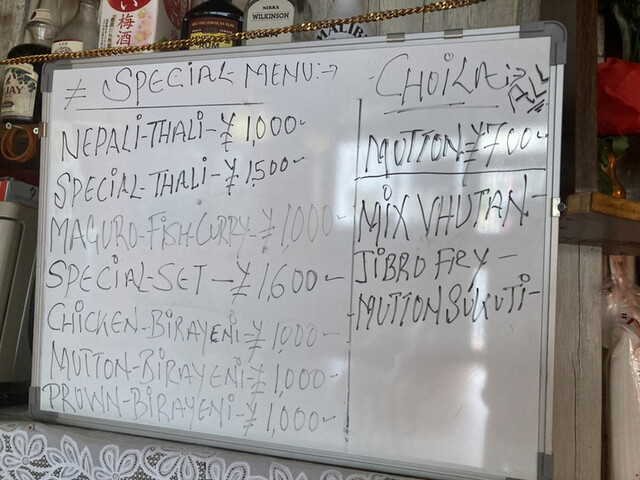 い
梅酒
NIKKA
WILKINSON
RUM
MALIBU
JAY
≠ SPECIAL-MENU:→
NEPALI-THALI-¥1,000~
SPECIAL-THALI-¥1,500~
MAGURO-FISH-CURRY-¥1,000~
SPECIAL-SET-¥1,600~
CHICKEN-BIRAYENI-¥1,000~
MUTTON-BIRAYENI-¥1,000~
PROWN-BIRAYENI-¥1,000~
CHOILA:→
MUTTON¥700~
MIX VHUTAN-
JIBRO FRY-
MUTTON SUKUTI-